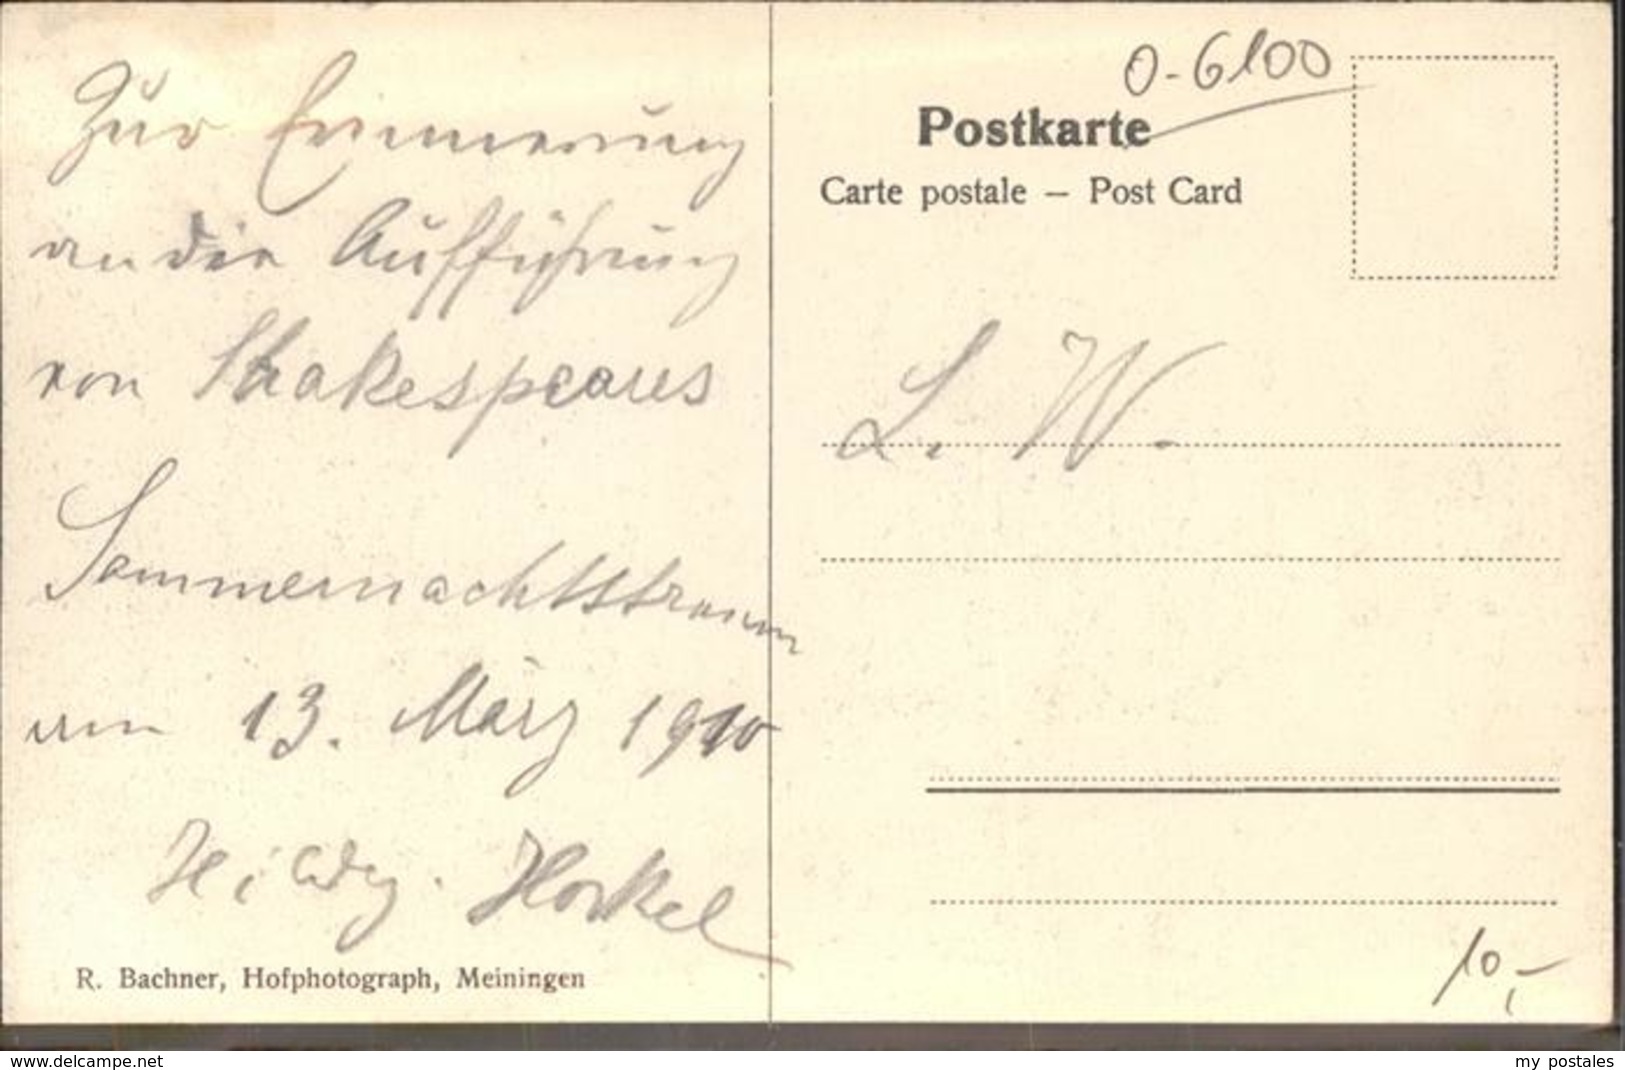 Zur Erinnerung
an die Aufführung
von Shakespeares
Sommernachtstraum
am 13. März 1910
R. Bachner, Hofphotograph, Meiningen
0-6100
Postkarte
Carte postale – Post Card
L. W.
10,-
www.delcampe.net
my postales